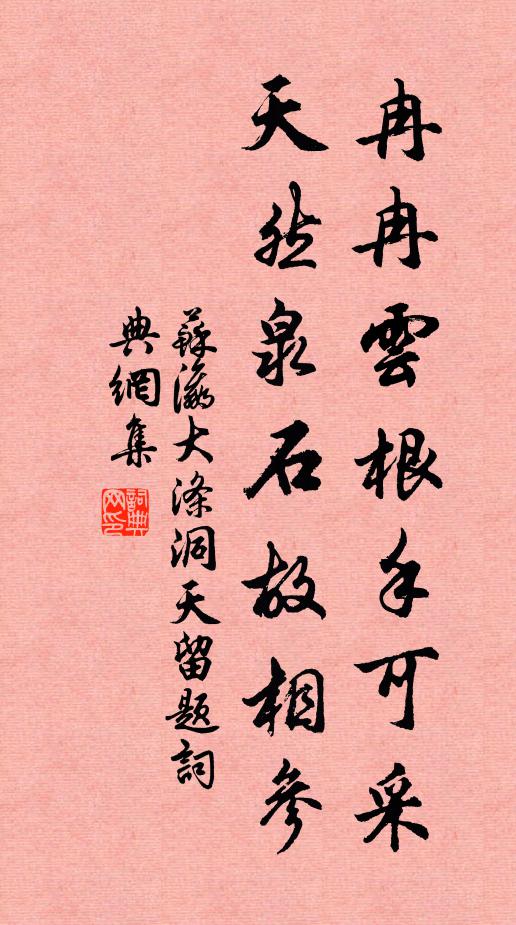 冉冉雲根手可采
天然泉石故相參
蘇瀛大滌洞天留題詞
典網集
詞典網印